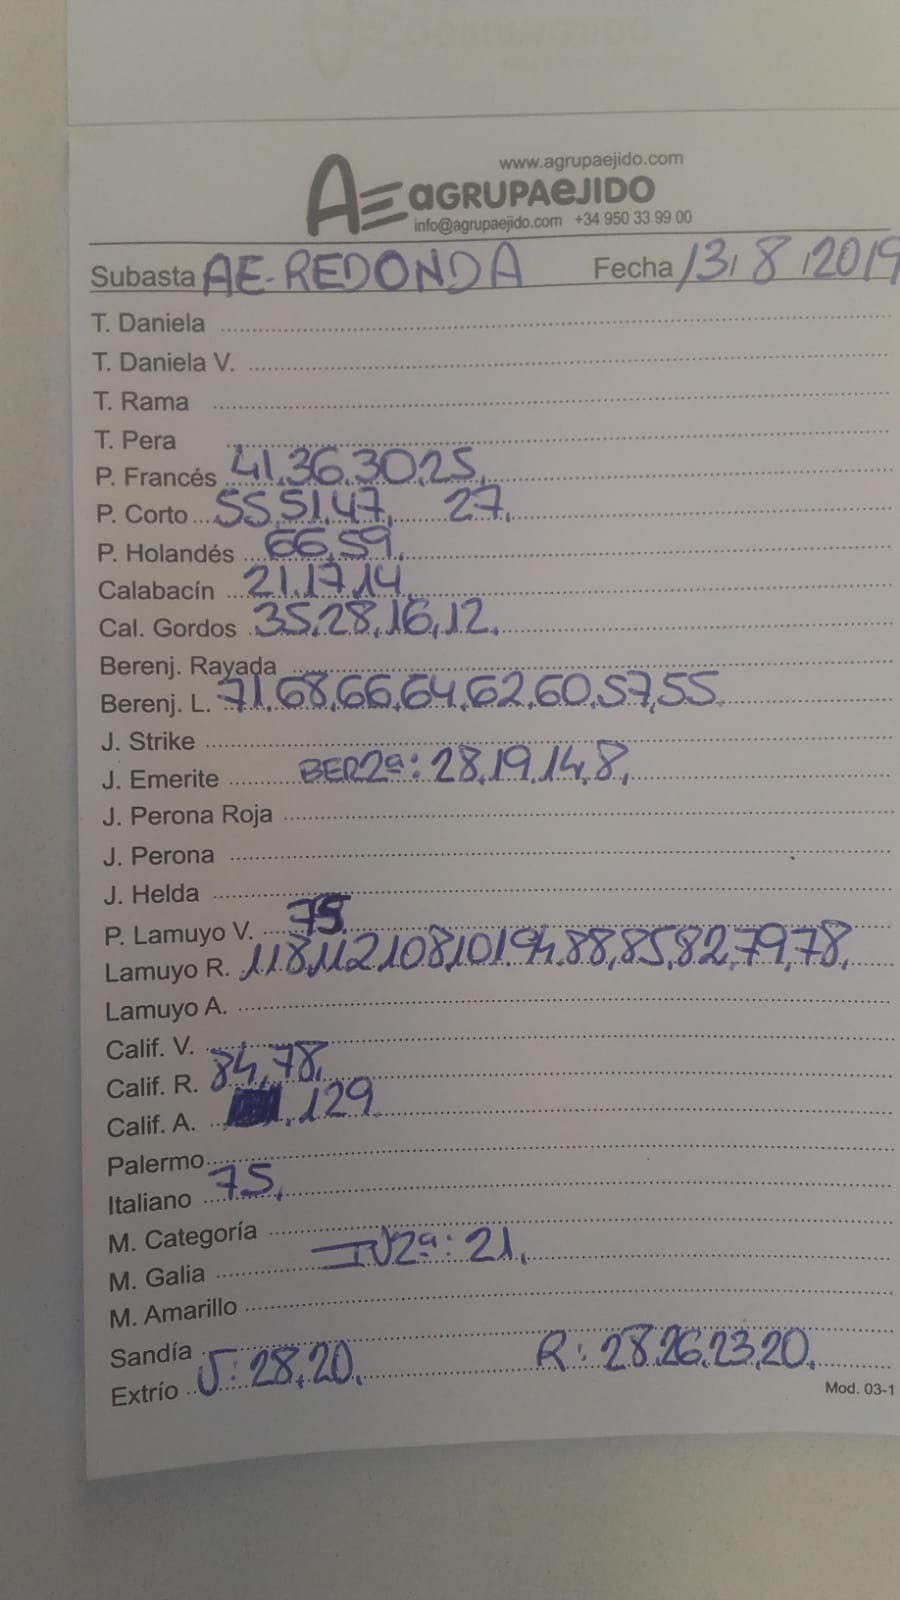 www.agrupaejido.com
AE AGRUPAEJIDO
info@agrupaejido.com +34 950 33 99 00
Subasta AE-REDONDA Fecha 13/8/2019
T. Daniela
T. Daniela V.
T. Rama
T. Pera
P. Francés 41,36,30,25,
P. Corto 55,51,47, 27,
P. Holandés 66,59,
Calabacín 21,17,14
Cal. Gordos 35,28,16,12,
Berenj. Rayada
Berenj. L. 71,68,66,64,62,60,57,55
J. Strike
J. Emerite BER2ª: 28,19,14,8,
J. Perona Roja
J. Perona
J. Helda
P. Lamuyo V. 75
Lamuyo R. 118,112,108,101,94,88,85,82,79,78,
Lamuyo A.
Calif. V.
Calif. R. 84,78,
Calif. A. 129
Palermo
Italiano 75,
M. Categoría
M. Galia IV2ª: 21,
M. Amarillo
Sandía
Extrío V: 28,20, R: 28,26,23,20,
Mod. 03-1